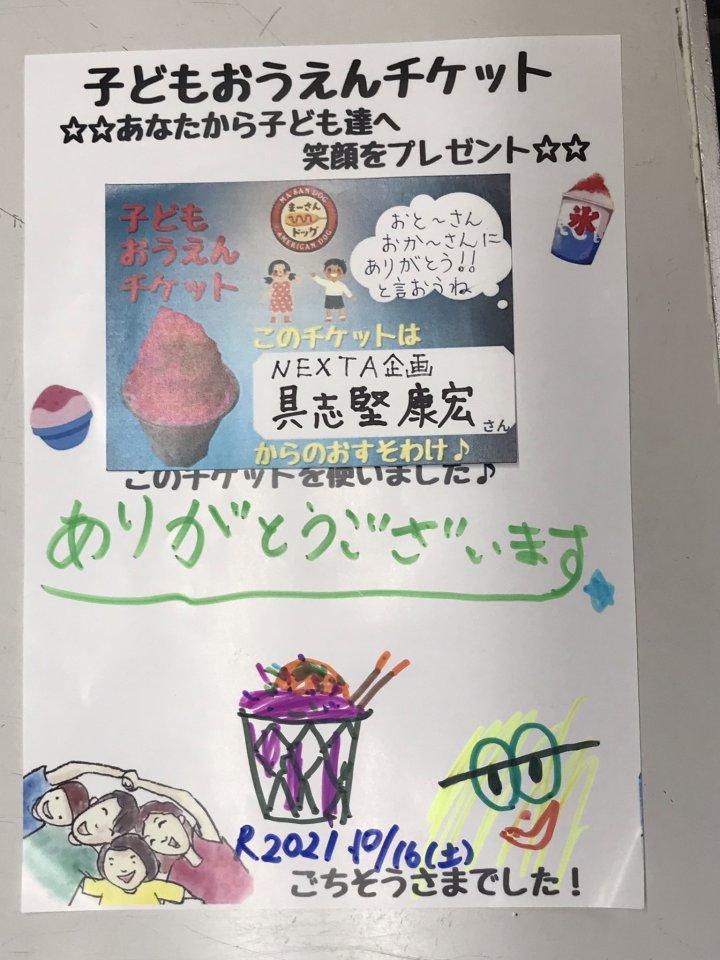 子どもおうえんチケット
☆☆あなたから子ども達へ
笑顔をプレゼント☆☆
子ども
おうえん
チケット
MA-SAN DOG
まーさん
ドッグ
AMERICAN DOG
おと〜さん
おか〜さんに
ありがとう!!
と言おうね
氷
このチケットは
NEXTA企画
具志堅 康宏さん
からのおすそわけ♪
このチケットを使いました♪
ありがとうございます
R2021 10/16(土)
ごちそうさまでした!